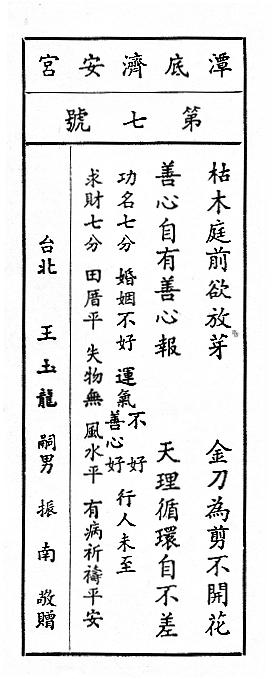 潭底濟安宮
第七號
枯木庭前欲放芽　金刀為剪不開花
善心自有善心報　天理循環自不差
功名七分　婚姻不好　運氣不好善心好　行人未至
求財七分　田厝平　失物無　風水平　有病祈禱平安
台北　王玉龍　嗣男　振南　敬贈